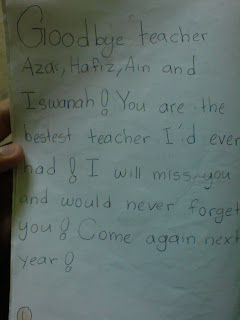 Goodbye teacher
Azar, Hafiz, Ain and
Iswanah! You are the
bestest teacher I'd ever
had! I will miss you
and would never forget
you! Come again next
year!